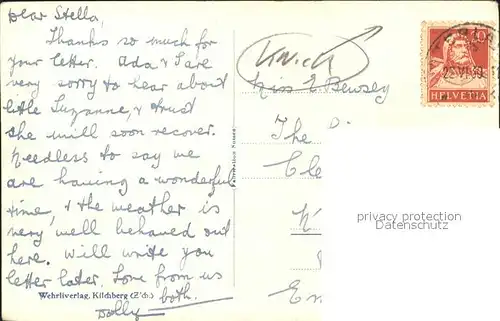 Dear Stella,
Thanks so much for
your letter. Ada & I are
very sorry to hear about
little Suzanne, & trust
she will soon recover.
Needless to say we
are having a wonderful
time, & the weather is
very well behaved out
here. Will write you
letter later. Love from us
both.
Dolly
Wehrliverlag, Kilchberg (Z'ch.)
Miss E Bewsey
The
Cle
En
40
HELVETIA
privacy protection
Datenschutz